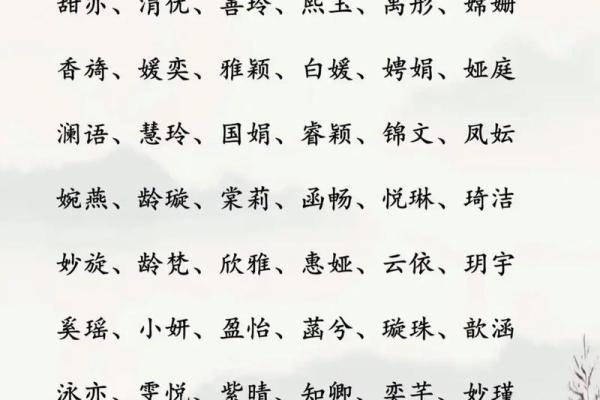 甜亦、涓优、喜玲、熙玉、禹彤、嫦姗
香旖、媛奕、雅颖、白媛、娉娟、娅庭
澜语、慧玲、国娟、睿颖、锦文、凤妘
婉燕、龄璇、棠莉、函畅、悦琳、琦洁
妙旋、龄梵、欣雅、惠娅、云依、玥宇
奚瑶、小妍、盈怡、菡兮、璇珠、歆涵
泳亦、雯悦、紫晴、知卿、奕芊、妙瑾